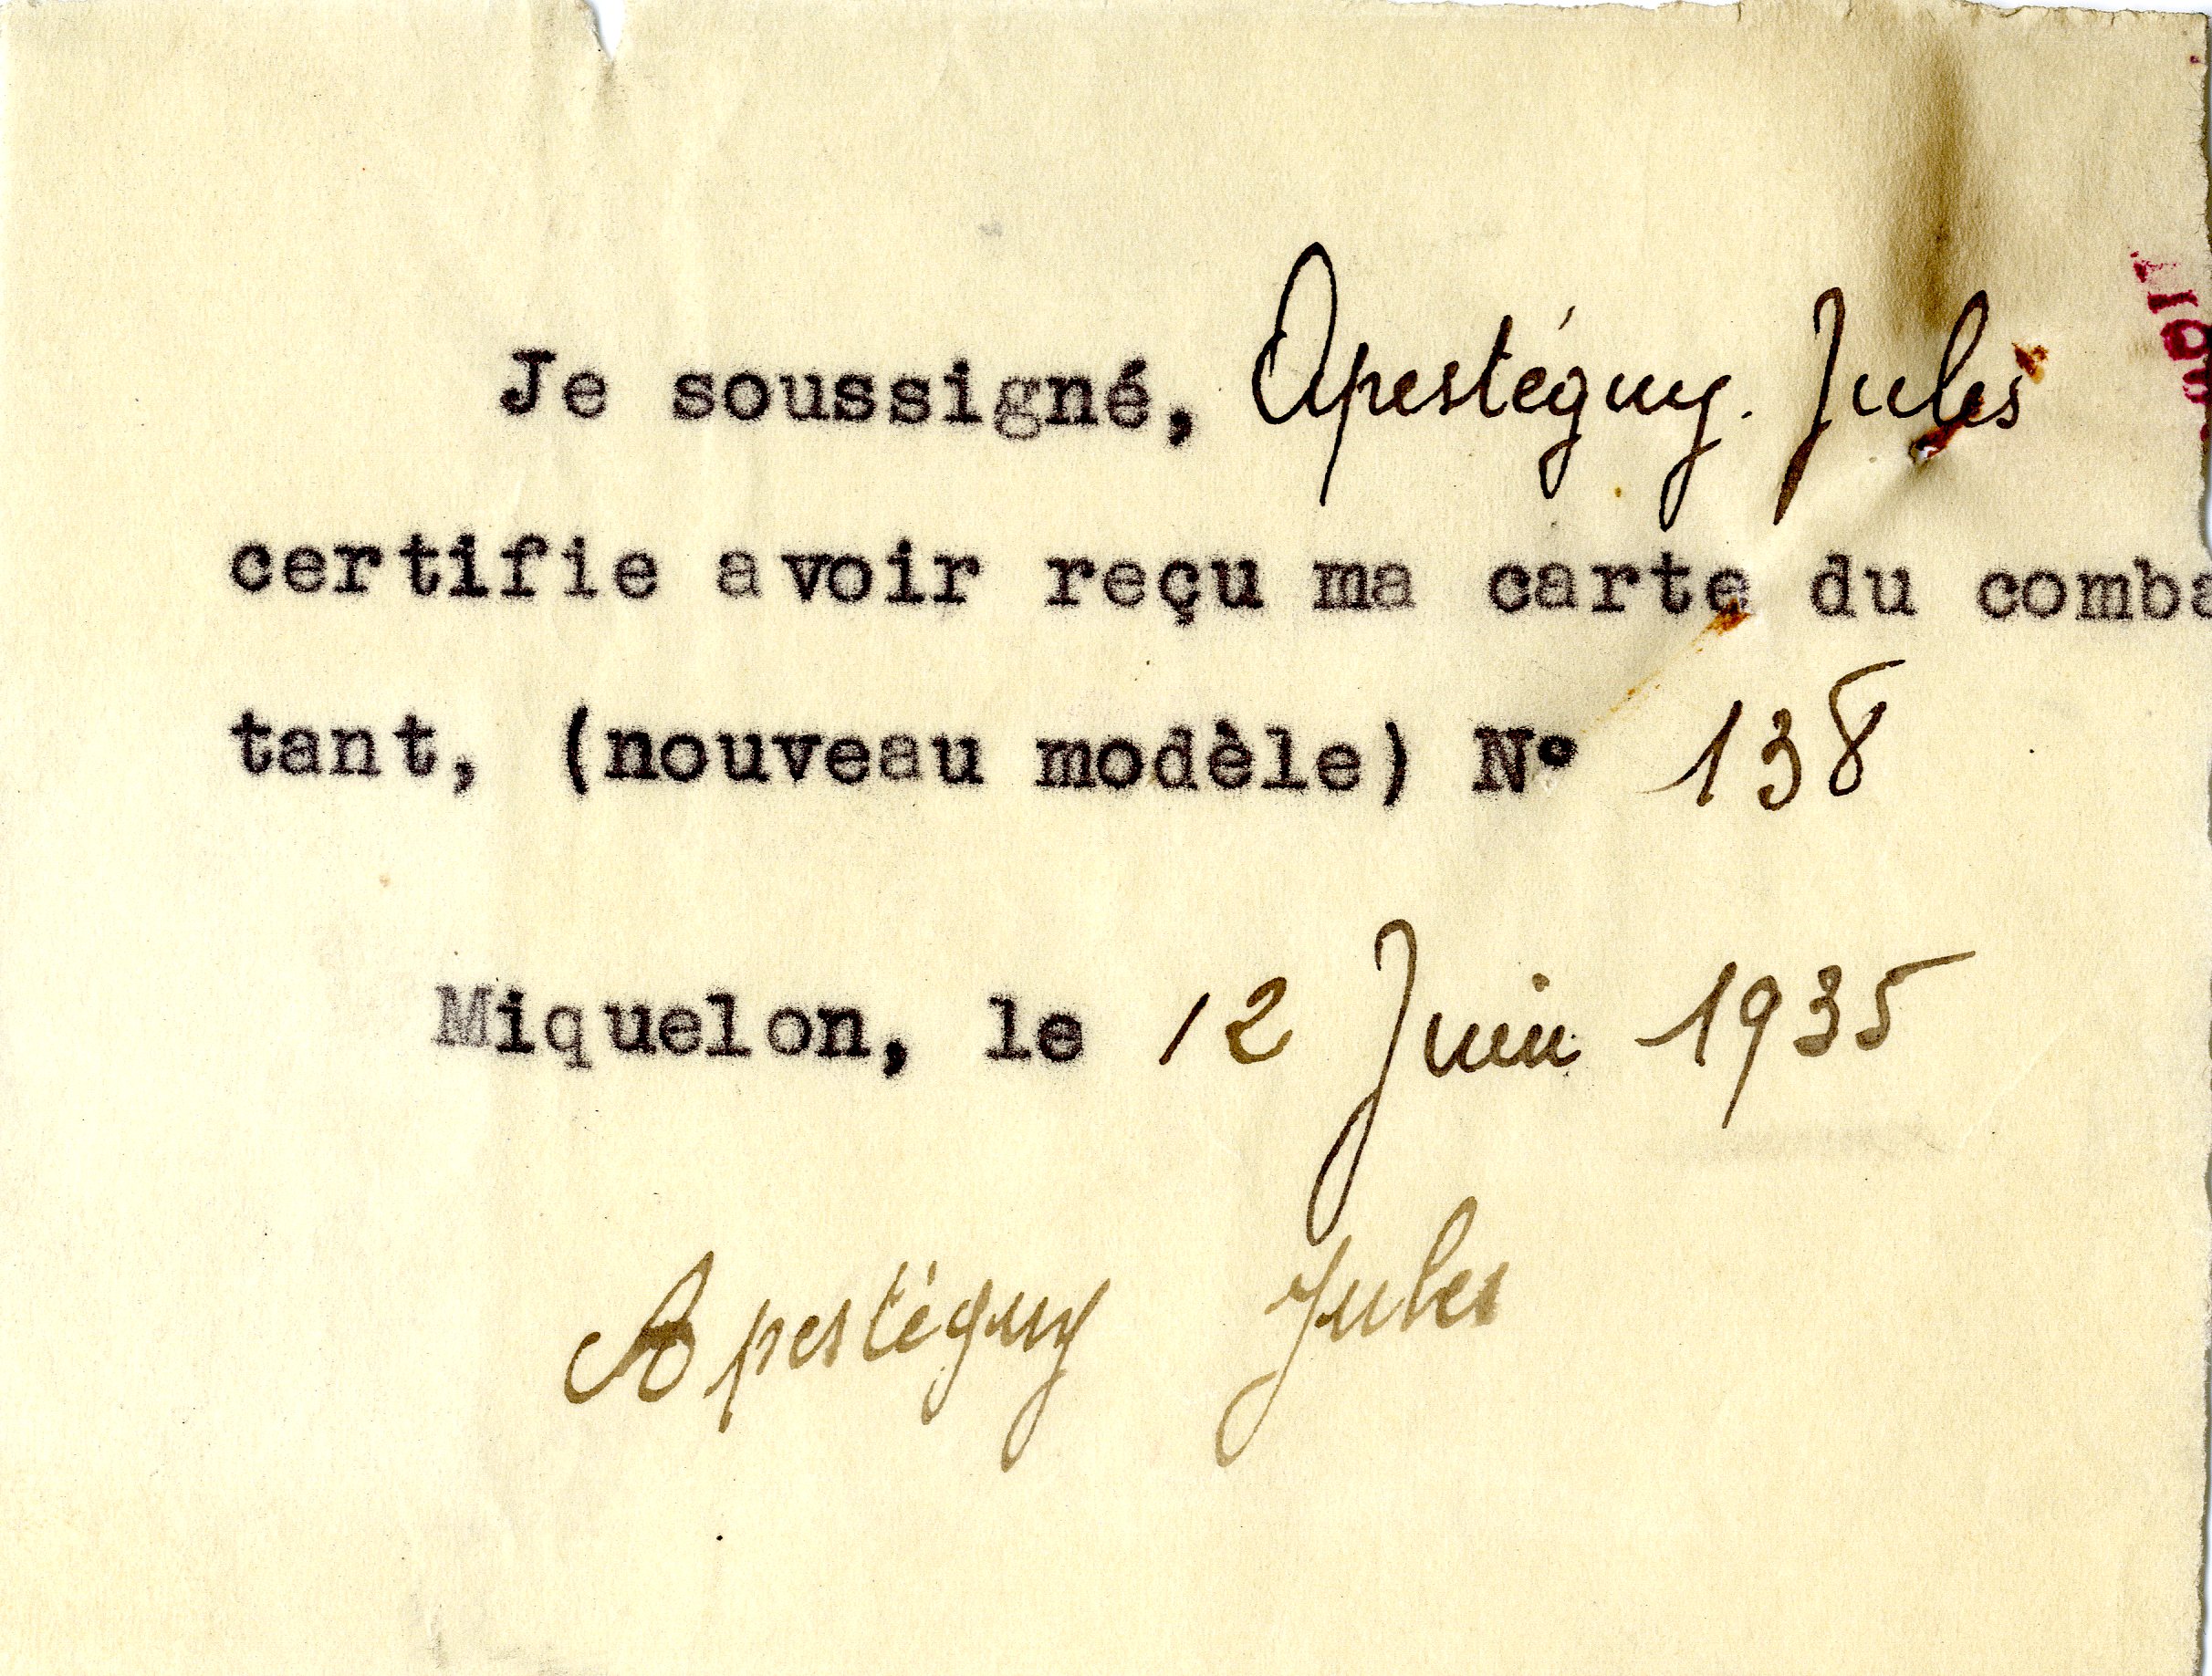 Je soussigné, Apestéguy. Jules
certifie avoir reçu ma carte du comba
tant, (nouveau modèle) N° 138
Miquelon, le 12 Juin 1935
Apestéguy Jules